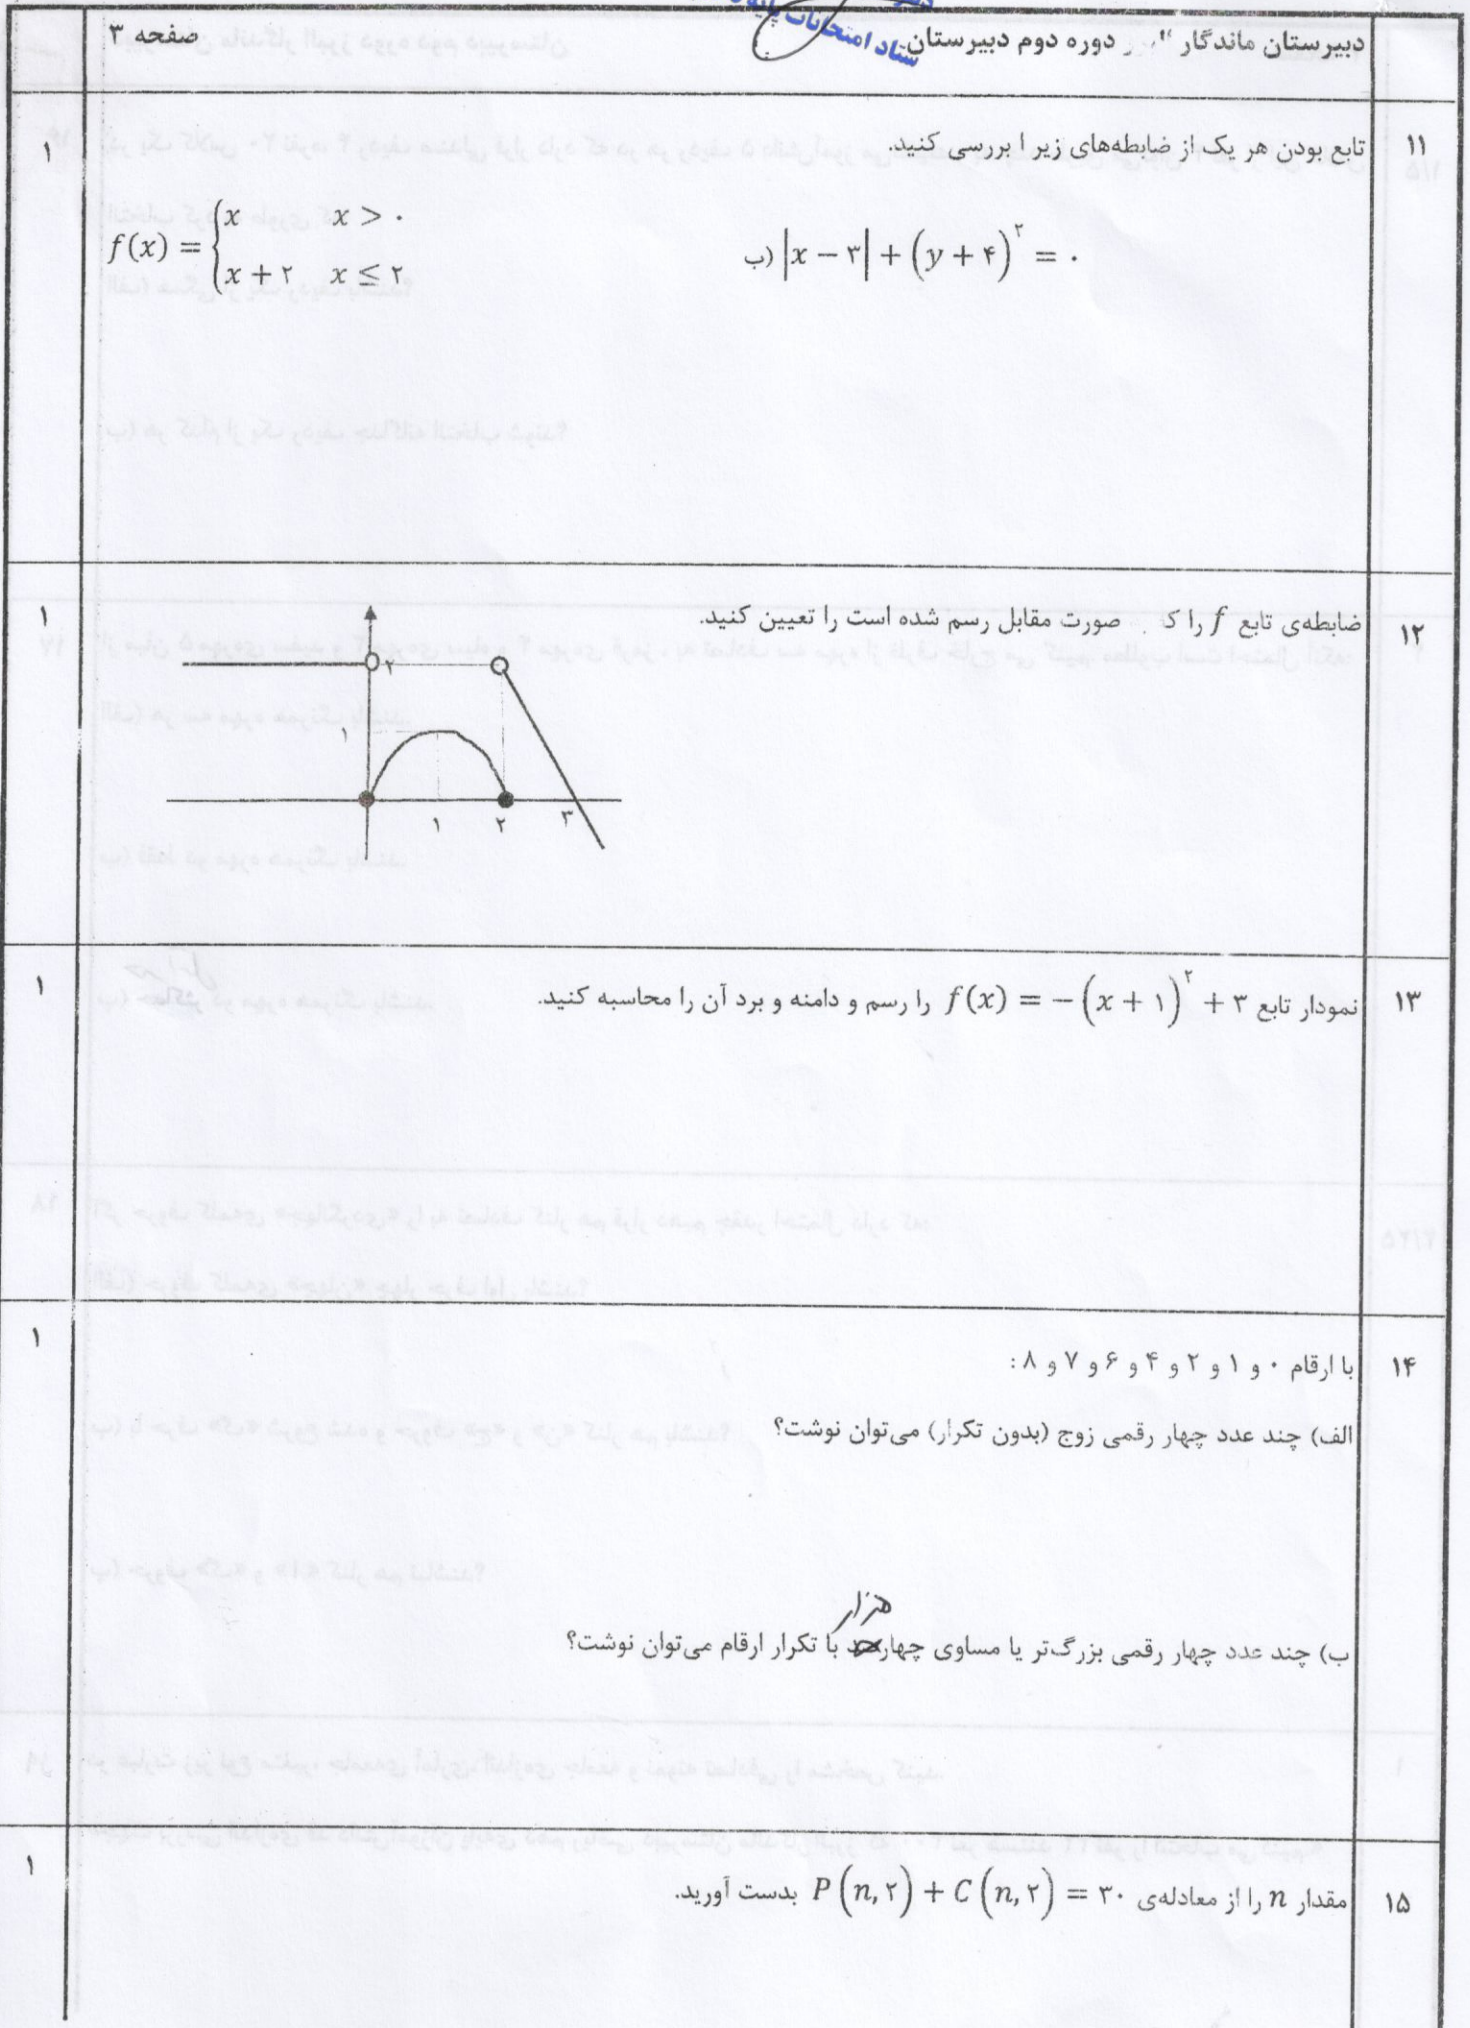 دبیرستان ماندگار دوره دوم دبیرستان
ستاد امتحانات
صفحه ۳
۱۱
تابع بودن هر یک از ضابطه‌های زیر ا بررسی کنید.
۱
ب) |x − ۳| + (y + ۴)^۲ = ۰
f(x) = { x    x > ۰
x + ۲    x ≤ ۲
۱۲
ضابطه‌ی تابع f را کـ صورت مقابل رسم شده است را تعیین کنید.
۱
۲
۱
۱ ۲ ۳
۱۳
نمودار تابع f(x) = −(x + ۱)^۲ + ۳ را رسم و دامنه و برد آن را محاسبه کنید.
۱
۱۴
با ارقام ۰ و ۱ و ۲ و ۴ و ۶ و ۷ و ۸ :
۱
الف) چند عدد چهار رقمی زوج (بدون تکرار) می‌توان نوشت؟
هزار
ب) چند عدد چهار رقمی بزرگ‌تر یا مساوی چهارصد با تکرار ارقام می‌توان نوشت؟
۱۵
مقدار n را از معادله‌ی P(n,۲) + C(n,۲) = ۳۰ بدست آورید.
۱